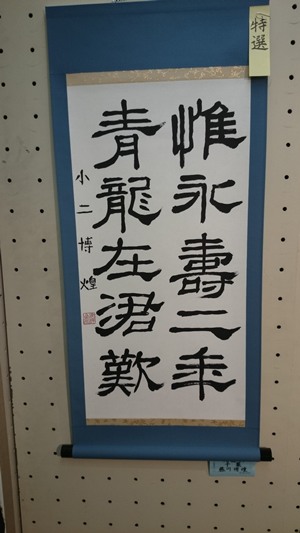 特選
惟永壽二年
青龍在涒歎
小二 博煌